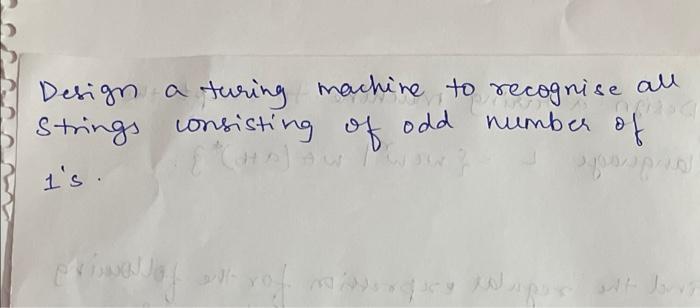 Design a turing machine to recognise all
strings consisting of odd number of
1's.